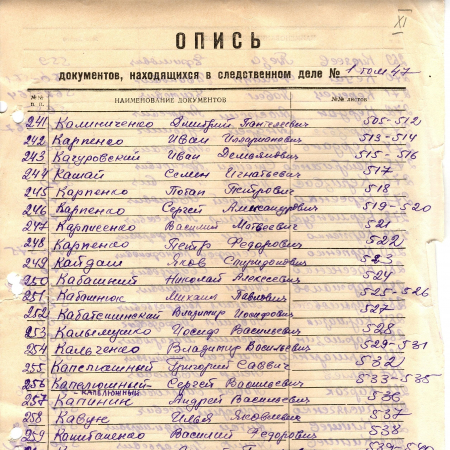 XI
ОПИСЬ
документов, находящихся в следственном деле № 1 том 47.
№№ п. п. НАИМЕНОВАНИЕ ДОКУМЕНТОВ №№ листов
241 Калиниченко Дмитрий Пантелеевич 505-512
242 Карпенко Иван Илларионович 513-514
243 Качуровский Иван Демьянович 515-516
244 Кашай Семен Игнатьевич 517
245 Карпенко Петрович 518
246 Карпенко Сергей Александрович 519-520
247 Карпиесенко Василий Матвеевич 521
248 Карпенко Петр Федорович 522
249 Кайдаш Яков Спиридонович 523
250 Кабашний Николай Алексеевич 524
251 Кабашнюк Михаил Павлович 525-526
252 Владимир Иосифович 527
253 Иосиф Васильевич 528
254 Кальченко Владимир Васильевич 529-531
255 Капелюшный Григорий Саввич 532
256 Капелюшный Сергей Васильевич 533-535
КАПЕЛЮШНЫЙ
257 Капинин Андрей Васильевич 536
258 Кавун Илья Яковлевич 537
259 Василий Федорович 538
539-540